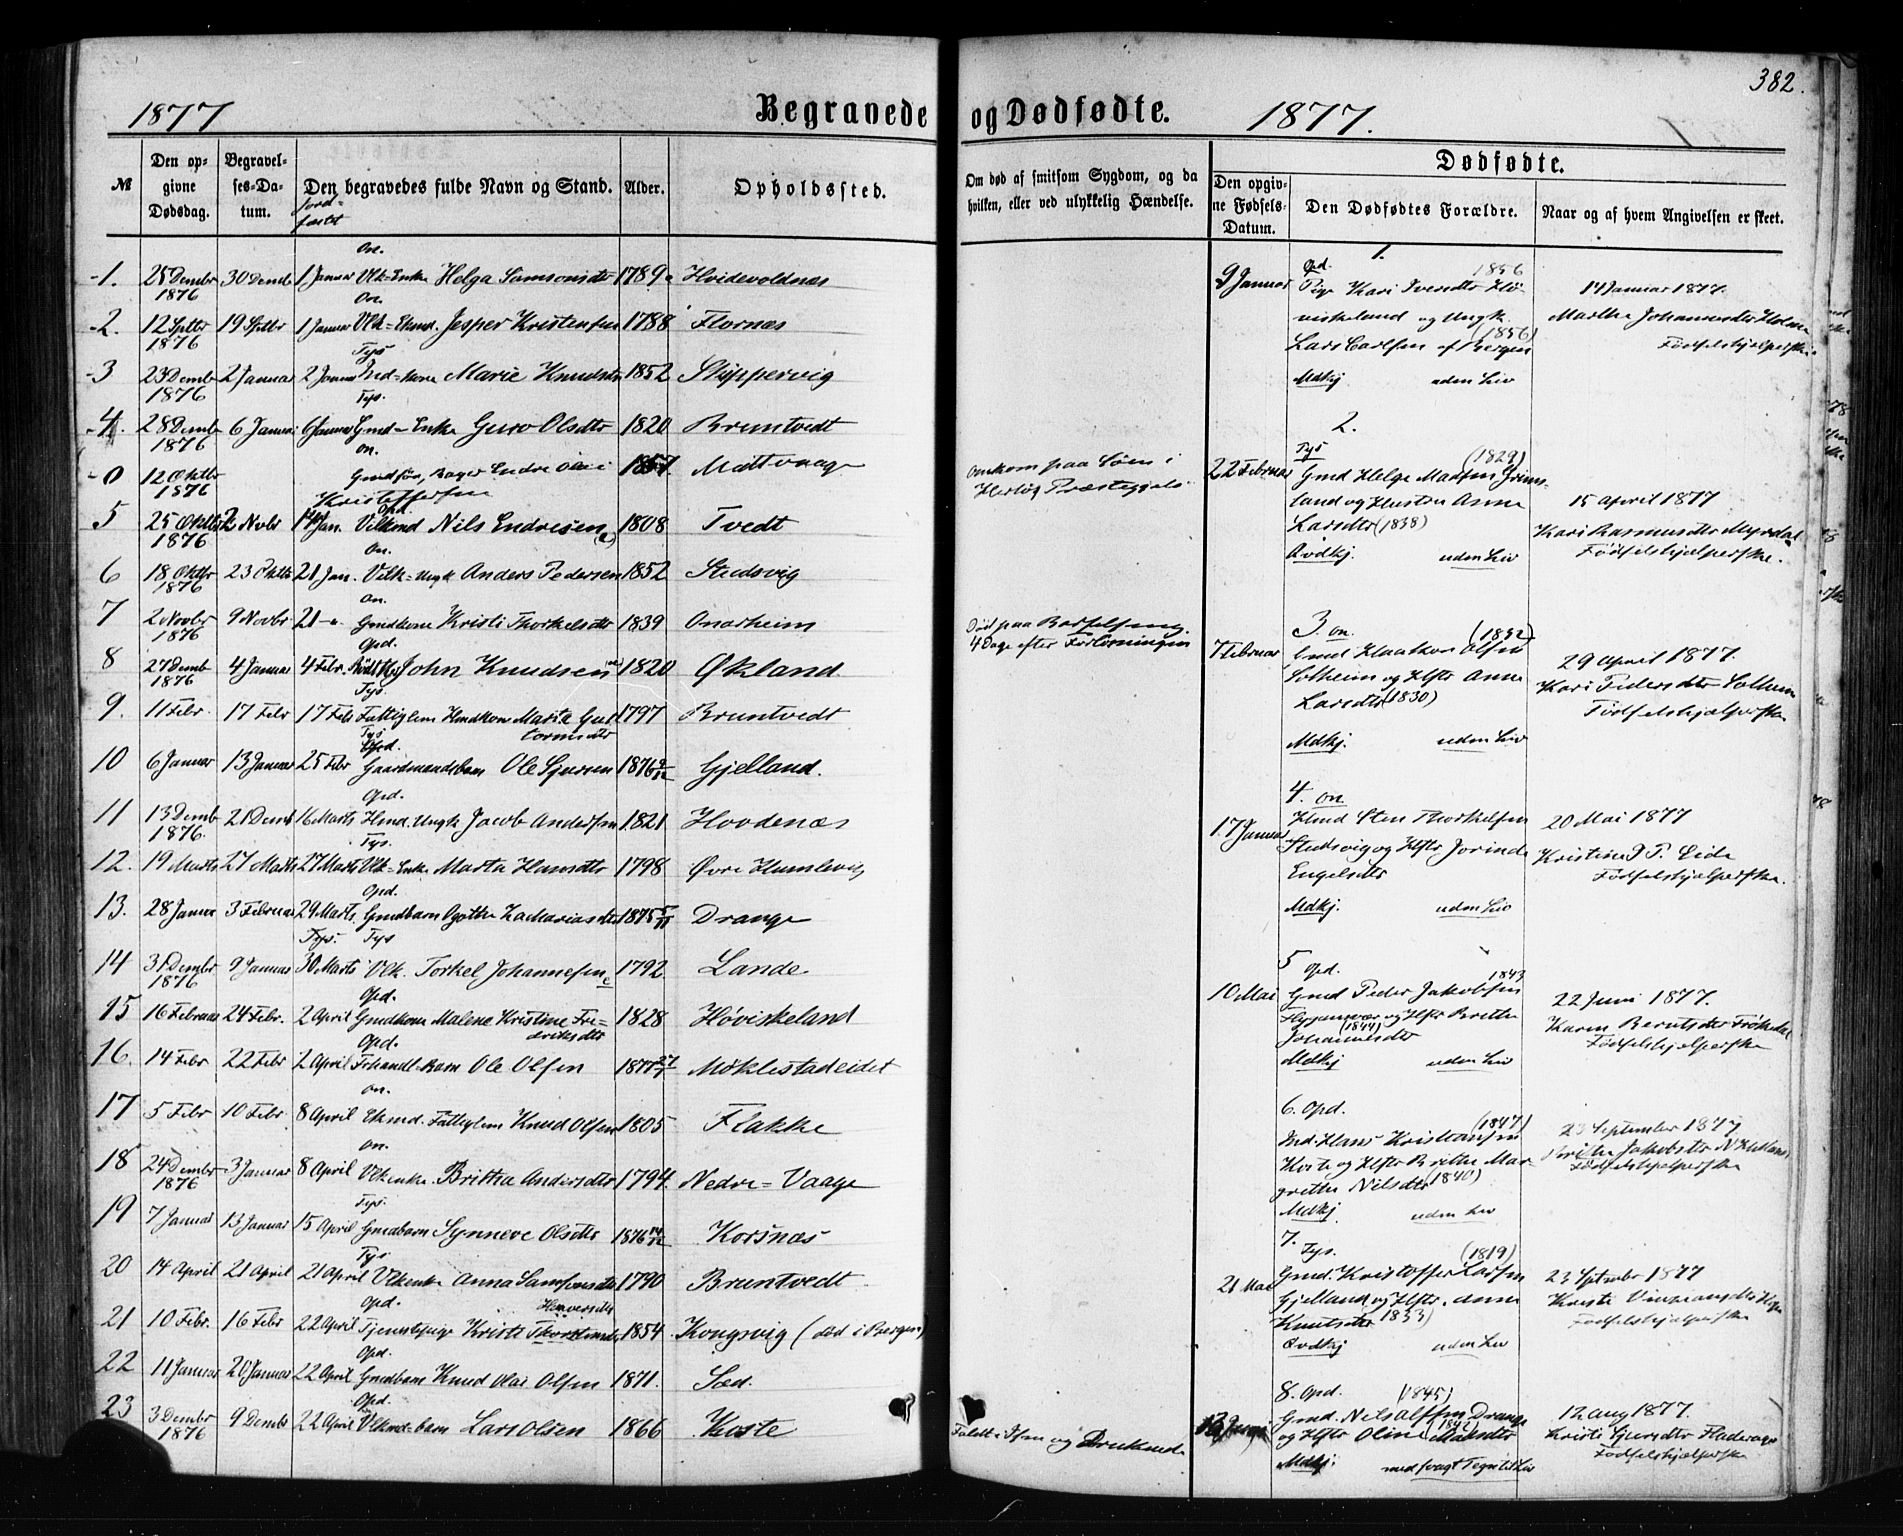 382.
1877
Begravede
og Dødfødte.
1877.
№
Den op-
givne
Dødsdag.
Begravel-
ses-Da-
tum.
Den begravedes fulde Navn og Stand.
Jord-
fæstet
Alder.
Opholdssted.
Om død af smitsom Sygdom, og da
hvilken, eller ved ulykkelig Hændelse.
Dødfødte.
Den opgiv-
ne Fødsels-
Datum.
Den Dødfødtes Forældre.
Naar og af hvem Angivelsen er skeet.
On.
1. 25 Dembr 30 Demb 1 Januar Vlk-Enke Helga Samsonsdtr 1789 Hvidevoldnæs
1876 On.
2. 12 Septbr 19 Septbr 1 Januar Vlk-Ekmd. Jesper Kristensen 1788 Flornæs
1876 Tys
3 23 Demb 2 Januar 2 Januar Ind-kone Marie Knudsdtr 1852 Skippervig
1876 Tys.
4. 28 Demb 6 Januar 6 Januar Gmd-Enke Guro Olsdtr 1820 Bruntvedt
1876 On.
0 12 Oktbr Endre Olai 1857 Mattvaage
1876 Kristoffersen
Omkom paa Søen i
Herlø Præstegjeld
Opd.
5 25 Oktbr 2 Novbr 14 Jan. Vlkmd Nils Endresen 1808 Tvedt
1876 On.
6 18 Oktbr 23 Oktbr 21 Jan. Vlk-Ungk Anders Pedersen 1852 Stusvig
1876 On.
7 2 Novbr 9 Novbr 21 -"- Gmdkone Kristi Thorkelsdtr 1839 Onarheim
1876 Opd.
Død paa Barselseng
4 Dage efter Forløsningen
8 27 Demb 4 Januar 4 Febr. John Knudsen 1820 Økland
1876 Tys.
9. 11 Febr. 17 Febr 17 Feb Fattiglem Hmdkone Marta Gut- 1797 Bruntvedt
Tys tormsdtr
Opd.
10 6 Januar 13 Januar 25 Febr Gaardmandsbarn Ole Sjursen 1876 9/12 Gjelland.
Opd.
11 13 Demb 21 Demb 16 Marts Hmd. Ungk Jacob Andersen 1821 Hovdenæs
1876. Tys.
12. 19 Marts 27 Marts 27 Marts Vlk-Enke Marta Hansdtr 1798 Øvre Humlevig
Opd.
13. 28 Januar 3 Februar 29 Marts Gmdbarn Agathe Zakariasdtr 1875 5/11 Drange
Tys. Tys
14 31 Dembr 9 Januar 30 Marts Vlk. Torkel Johannesen 1792 Lande
1876 Opd.
15 16 Februar 24 Febr. 2 April Gmdkone Malene Kristine Fre- 1828 Høviskeland
Opd. deriksdtr
16. 14 Febr 22 Febr 2 April Fehandl-Barn Ole Olsen 1877 27/1 Møklestadeidet
On.
17 5 Febr 10 Febr 8 April Ekmd. Fattiglem Knud Olsen 1805 Flakke
On.
18 24 Dembr 3 Januar 8 April Vlkenke Britha Andersdtr 1794. Nedre-Vaage
1876 Tys.
19 7 Januar 13 Januar 15 April Gmdbarn Synneve Olsdtr 1876 14/12 Korsnæs
Tys
20 14 April 21 April 21 April Vlkenke Anna Samsonsdtr 1790 Bruntvedt
Opd.
21 10 Febr. 16 Febr 22 April Tjenestepige Kristi Thorsteinsdtr 1854 Kongsvig (død i Bergen)
Opd.
22 11 Januar 20 Januar 22 April Gmdbarn Knud Olai Olsen 1871. Sæd.
Opd.
23 3 Dembr 9 Demb 22 April Vlkmd-barn Lars Olsen 1866 Koste
1876
Faldt i Isen og Druknede
1.
9 Januar Opd. 1856
Pige Kari Iversdtr Hø-
viskeland og Ungk.
(1856)
Lars Carlsen af Bergen
Mdkj uden Liv
14 Januar 1877.
Martha Johannesdtr Holme
Fødselshjælperske.
2.
Tys (1829)
22 Februar Gmd Helge Madsen Grims-
land og Hustru Anna
Larsdtr (1838)
Qvdkj. uden Liv
15 April 1877
Kari Rasmusdtr Myrdal
Fødselshjælperske.
3. On. (1832)
7 Februar Gmd Haakon Olsen
Solheim og Hstr Anna
Larsdtr (1830)
Mdkj. uden Liv
29 April 1877.
Kari Pedersdtr Solheim
Fødselshjælperske
4. On.
17 Januar Hmd Sten Thorkelsen
Stusvig og Hstr Jorinde
Engelsdtr
Mdkj. uden Liv
20 Mai 1877
Kristine P. Eide
Fødselshjælperske.
5 Opd. 1843
10 Mai Gmd Peder Jakobsen
og Hstr Britha
(1844)
Johannesdtr
Mdkj uden Liv
22 Juni 1877.
Karen Berntsdtr Frøkedal
Fødselshjælperske
6. Opd. (1847)
Ind. Hans Kristiansen
og Hstr Britha Mar-
gretha Nilsdtr (1840)
Mdkj uden Liv
23 September 1877
Britha Jakobsdtr
Fødselshjælperske
7. Tys. (1819)
21 Mai Gmd. Kristoffer Larsen
Gjelland og Hstr. Anna
Knutsdtr (1833)
Qvdkj uden Liv
23 Septbr 1877
Fødselshjælperske
8. Opd. (1845)
Gmd. Nils Olssen Drange
og Hstr Oline (1842) Madsdtr
Mdkj. med svagt Tegn til Liv
12 Aug 1877.
Kristi Sjursdtr
Fødselshjælperske